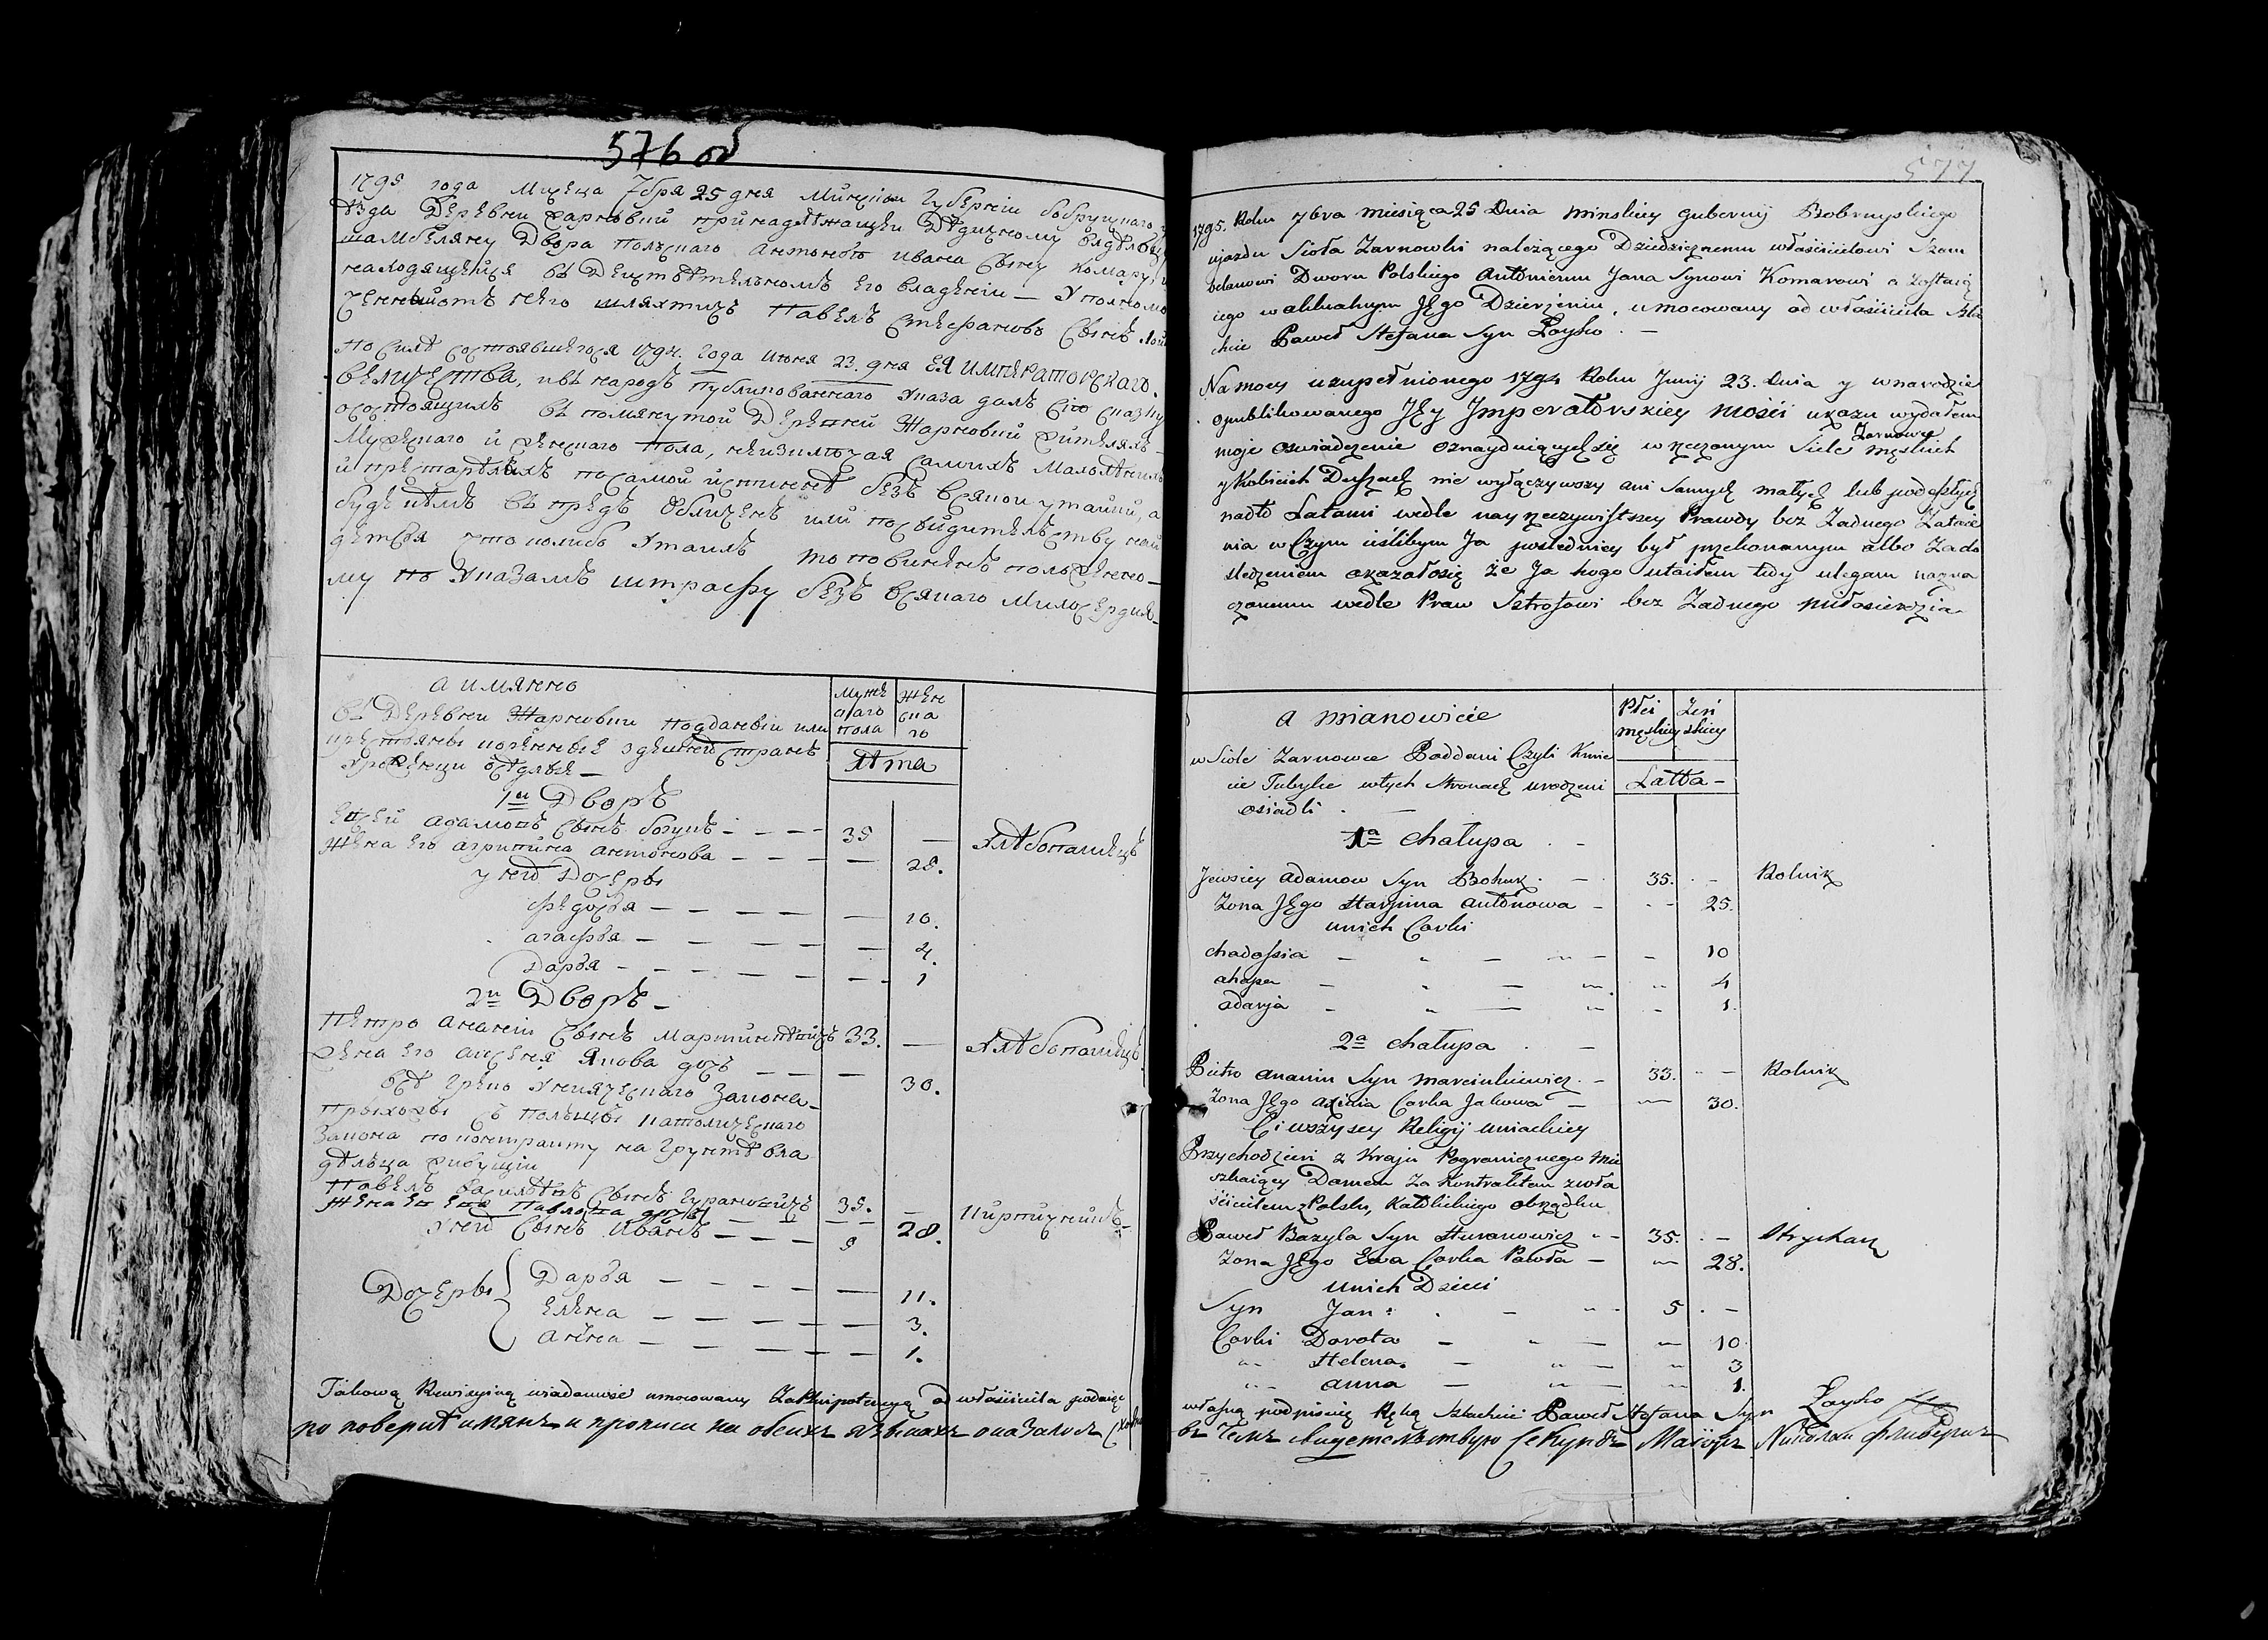 576 об
1795 года Месяца 7бря 25 дня Минской Губернии бобруцкаго
Деревни Жарновки принадлежащеи Дедичному владельцу
шамбеляну Двора полскаго Антонию ивана сыну Комару
находящейся въ Деиствителномъ его владении — Уполномо
ченный отъ него шляхтичъ Павелъ Стефановъ сынъ
По силе состоявшегося 1794. года июня 23. дня ЕЯ ИМПЕРАТОРСКАГО
ВЕЛИЧЕСТВА, и въ народъ публикованнаго указа далъ сию сказку
о состоящихъ въ помянутой Деревни Жарновки жителяхъ
Мужескаго и женскаго пола, не изключая самихъ малолетнихъ
и престарелыхъ по самой истинне безъ всякои утайки, а
буде кемъ въ предь обличенъ или по свидителству
что колибо утаилъ то повиненъ положенно
му по указамъ штрафу безъ всякаго милосердия
а имянно
Муже
скаго
пола
Жен
ска
го
Въ Деревни Жарновки подданыи или
крестьяне
Лета
1й Дворъ
Евсей адамовъ сынъ богукъ — 35 — хлебопашецъ
Жена его агрипина антонова — 28.
у него Дочери
федося — 10.
агафья — 4.
Дарья — 1
2й Дворъ
Петро ананіи сынъ мартинкевичъ 33. — хлебопашецъ
жена его Якова дочь — 30.
все греко униацкаго Закона
прихожы съ полщы католицкаго
Закона по контракту на грунте вла
делца живущи
Павелъ василевъ сынъ гурановичъ 35. — Кирпичникъ
Жена ево ева Павлова дочь — 28.
у него сынъ иванъ — 5
Дочеры
Дарья — 11.
елена — 3.
анна — 1.
Takową Rewizyiną wiadomość umocowany Zaplenipotencyą od właściciela podaiąc
по поверке имянъ и прописи на обеихъ языкахъ оказалось
577
1795. Roku 7bra miesiąca 25 Dnia minskiey gubernij Bobruyskiego
ujazdu Sioła Zarnowki należącego Dziedzicznemu właścicielowi Szam
belanowi Dworu Polskiego Antoniemu Jana Synowi Komarowi a zostaią
cego w aktualnym Jego Dzierżeniu, umocowany od właściciela Szla
chcic Paweł Stefana Syn Łoyko. —
Na mocy uzupełnionego 1794 Roku Junij 23. Dnia y w narodzie
opublikowanego JEy Jmperatorskiey Mości ukazu wydałem
moje oswiadczenie o znayduiących się w rzeczonym Siele Zarnowce męskich
y Kobicich Duszach nie wyłączywszy ani Samych małych lub podeszłych
nadto Latami wedle nay rzeczywistszey Prawdy bez Zadnego Zataie
nia w Czym ieślibym Ja posledniey był przekonanym albo Zado
sledzeniem okazałosię że Ja kogo utaiłem tedy ulegam nazna
czonemu wedle Praw Sztrofowi bez Zadnego miłosierdzia
a mianowicie
Płci
męskiey
Zeń
skiey
w Siole Zarnowce Poddani Czyli Kmie
cie Tubylce w tych Stronach urodzeni
osiadli. —
Latta —
1a chałupa
Jewsiey Adamow Syn Bohuk — 35. — Rolnik
Zona Jego Harpina Antonowa — 25.
u nich Corki
chadossia — 10
ahapa — 4
adarja — 1.
2a chałupa
Pietro ananin Syn Marcinkiewicz — 33. — Rolnik
Zona Jego Corka Jakowa — 30.
Ci wszyscy Religij uniackiey
Przychodzieni z Kraju Pogranicznego mie
szkaiący Domem Za Kontraktem z wła
ścicielem z Polski, Katolickiego obrządku
Paweł Bazyla Syn Huranowicz — 35. — Strycharz
Zona Jego Ewa Corka Pawła — 28.
u nich Dzieci
Syn Jan — 5 —
Corki Dorota — 10
Helena — 3
anna — 1.
własną podpisuię Ręką Szlachcic Paweł Stefana Syn Łoyko
въ чемъ свидетелствую Секундъ Маіоръ Николаи